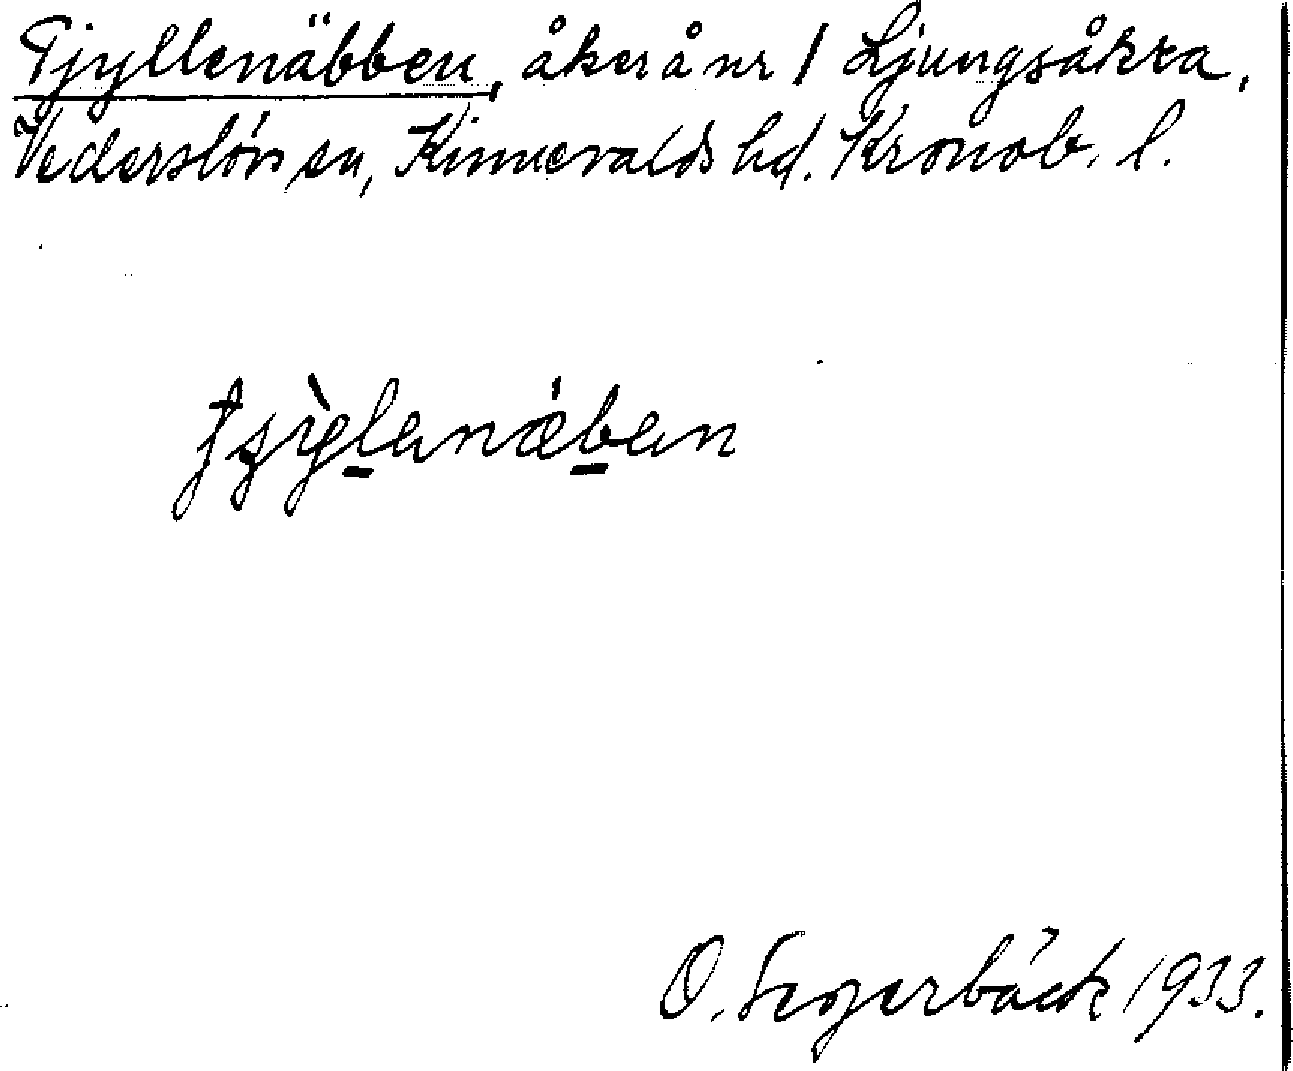 Tjyllenäbben, åker å nr 1 Ljungsåkra,
Vederslövs sn, Kinnevalds hd. Kronob. l.
O. Segerbäck 1933.